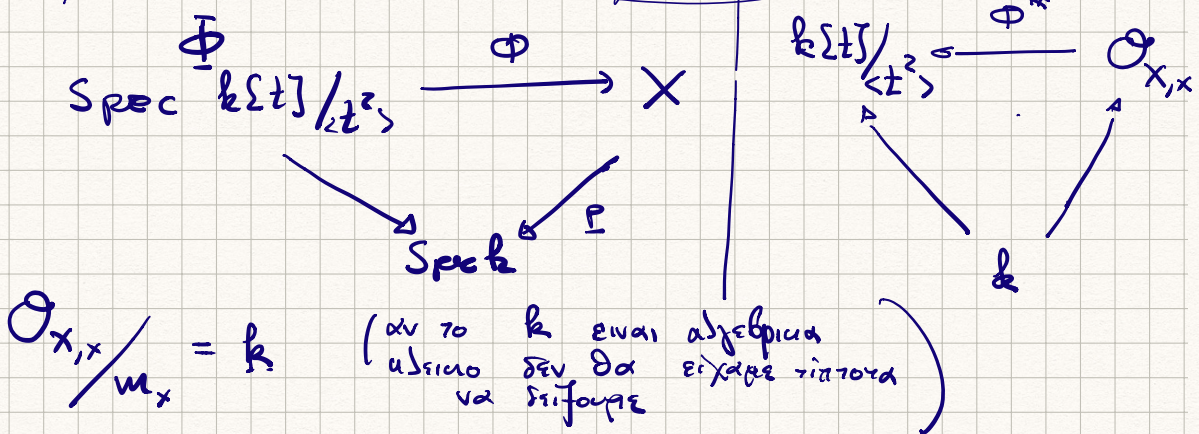 Φ
Φ Φ*
Spec k[t]/<t²> → X k[t]/<t²> ← O_{X,x}
P
Spec k k
O_{X,x}/m_x = k (αν το k ειναι αλγεβρικα
κλειστο δεν θα ειχαμε τιποτα
να δειξουμε)